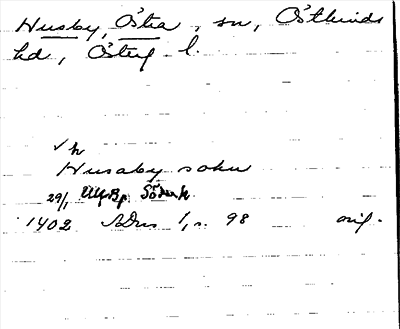 Husby, Östra, sn, Östkinds
hd, Österg l.
h
Husaby sokn
29/1 UlfBp Söderk.
1402 SDns 1, s. 98 orig.